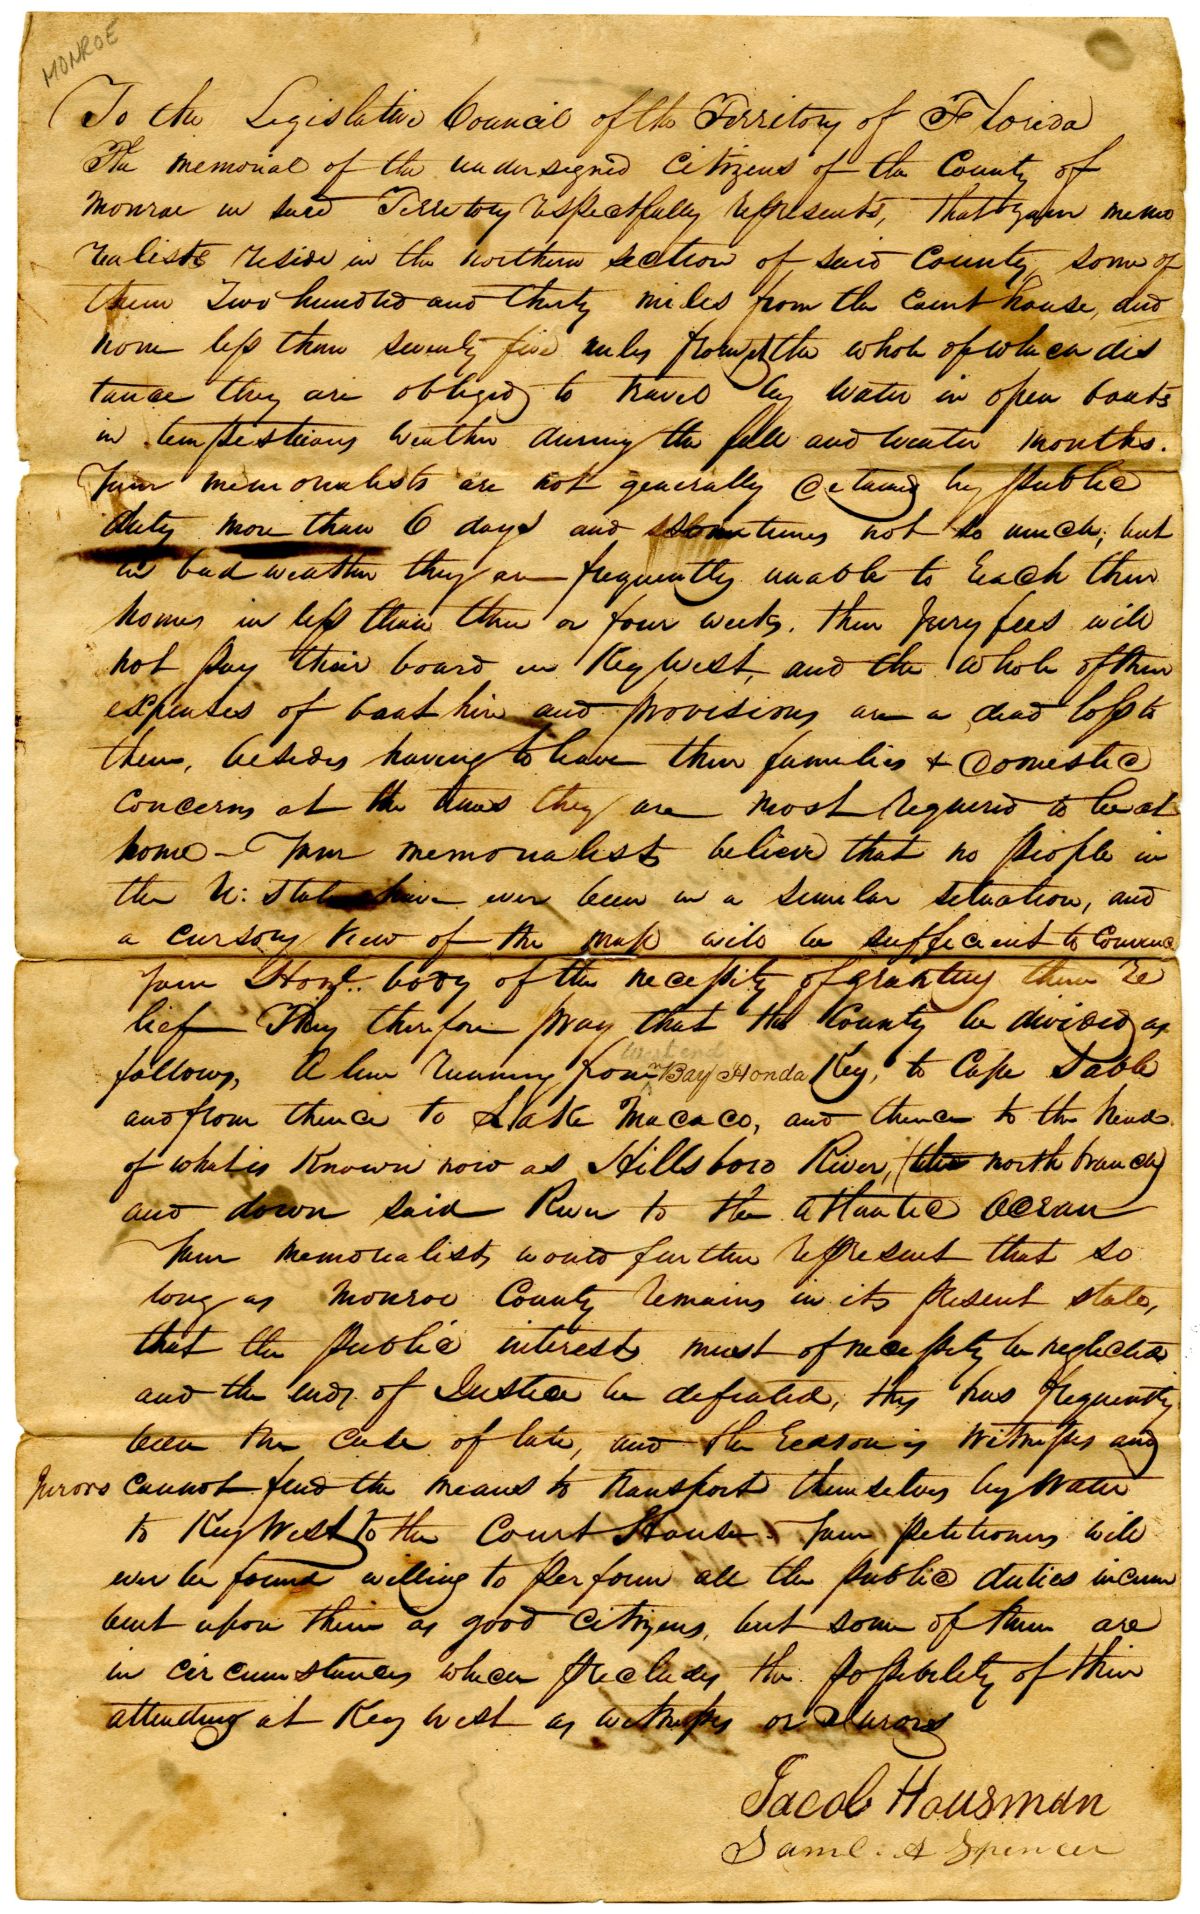 MONROE
To the Legislative Council of the Territory of Florida
The memorial of the undersigned citizens of the County of
Monroe in said Territory respectfully represents, that your memo
rialists reside in the northern section of said County, some of
them Two hundred and thirty miles from the Court house, and
none less than seventy five miles from it the whole of which dis
tance they are obliged to travel by water in open boats
in tempestuous weather during the fall and winter months.
Your memorialists are not generally detained by public
duty more than 6 days and sometimes not so much; but
in bad weather they are frequently unable to reach their
homes in less than three or four weeks. Their Jury fees will
not pay their board in Key West, and the whole of their
expenses of boat hire and provisions are a dead loss to
them, besides having to leave their families & domestic
concerns at the times they are most required to be at
home - Your memorialists believe that no people in
the U: States have ever been in a similar situation, and
a cursory view of the map will be sufficient to convince
your Honl. body of the necessity of granting them re
lief They therefore pray that the County be divided as
follows, A line running from
West end
Bay Honda Key, to Cape Sable
and from thence to Lake Macaco, and thence to the head
of what is known now as Hillsboro River, (the north branch)
and down said River to the Atlantic Ocean
Your memorialists would further represent that so
long as Monroe County remains in its present state,
that the public interests must of necessity be neglected
and the ends of Justice be defeated, this has frequently
been the case of late, and the reason is witnesses and
Jurors cannot find the means to transport themselves by water
to Key West to the Court House. Your petitioners will
ever be found willing to perform all the public duties incum
bent upon them as good citizens, but some of them are
in circumstances which precludes the possibility of their
attending at Key West as witnesses or Jurors
Jacob Housman
Saml. A Spencer